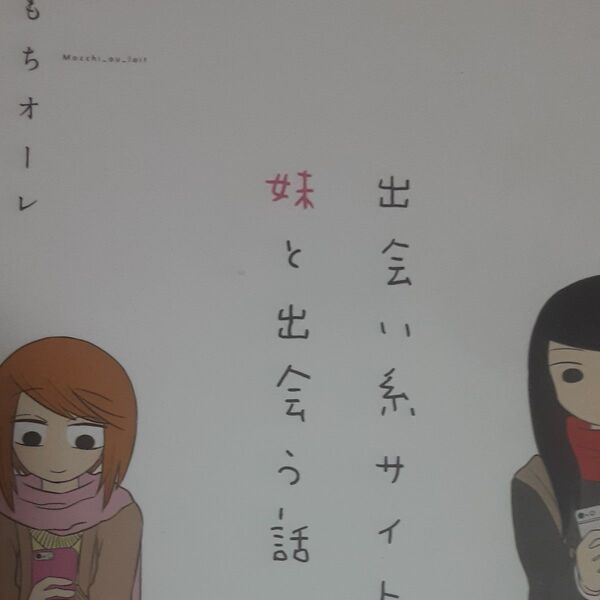 もちオーレ
Mocchi_au_lait
出会い系サイト
妹と出会う話